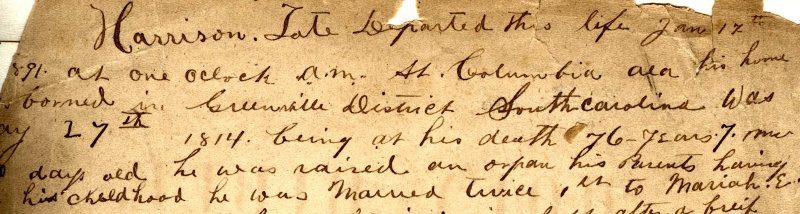 Harrison. Tate Departed this life Jan 17th
891. at one oclock a.m. At. Columbia ala his home
borned in Greenville District Southcarolina was
ay 27th 1814. being at his death 76 years. 7. mo
days old he was raised an orpan his Parents having
his childhood he was Married twice, 1st to Mariah. E.
after a breif